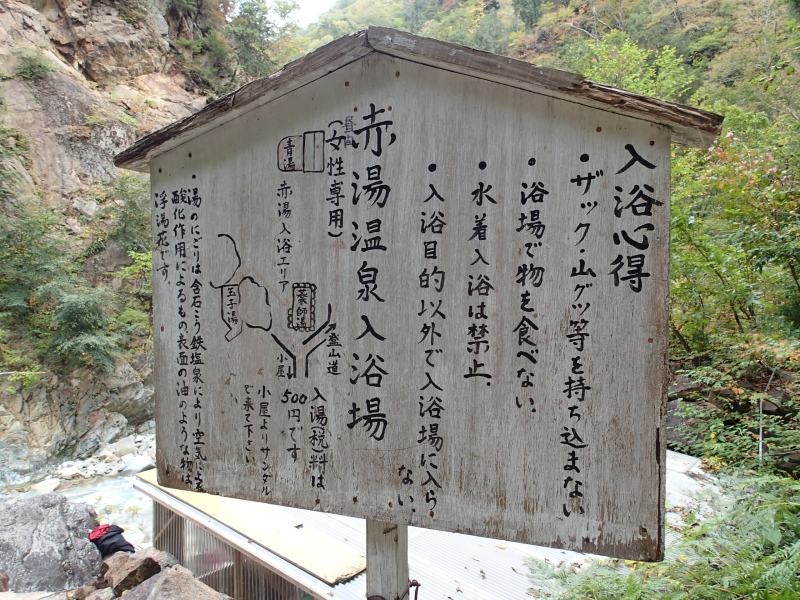 入浴心得
・ザック・山グツ等を持ち込まない
・浴場で物を食べない.
・水着入浴は禁止.
・入浴目的以外で入浴場に入ら
ない.
赤湯温泉入浴場
(女性専用)
青湯
赤湯入浴エリア
薬師湯
玉子湯
登山道
小屋
入湯(税)料は
500円です
小屋よりサンダル
で来て下さい
・湯のにごりは含石こう鉄塩泉により空気による
酸化作用によるもの表面の油のような物は
浮湯花です.